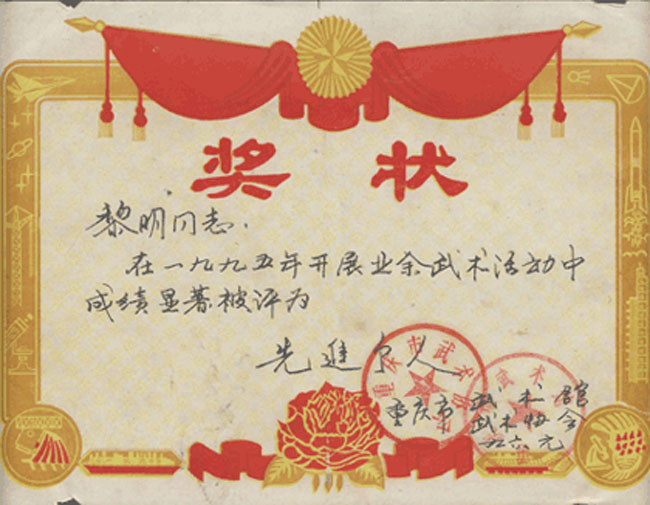 奖状
黎明同志.
在一九九五年开展业余武术活动中
成绩显著被评为
先進个人
重庆市武术馆
武术协会
九六元